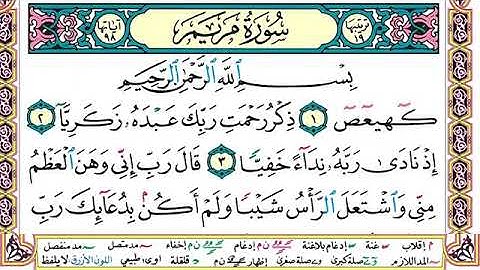 ترتيبها ١٩ سُورَةُ مَرْيَمَ آياتها ٩٨
بِسْمِ اللَّهِ الرَّحْمَٰنِ الرَّحِيمِ
كٓهيعٓصٓ ١ ذِكْرُ رَحْمَتِ رَبِّكَ عَبْدَهُۥ زَكَرِيَّآ ٢
إِذْ نَادَىٰ رَبَّهُۥ نِدَآءً خَفِيًّا ٣ قَالَ رَبِّ إِنِّى وَهَنَ الْعَظْمُ
مِنِّى وَاشْتَعَلَ الرَّأْسُ شَيْبًا وَلَمْ أَكُنۢ بِدُعَآئِكَ رَبِّ
م إقلاب غنة إدغام بلاغنة ن م إدغام ن م إخفاء مد متصل مد منفصل
المد اللازم صلة كبرى صلة صغرى إظهار ن م قلقلة اوى/ طبيعي اللون الأزرق لا يلفظ